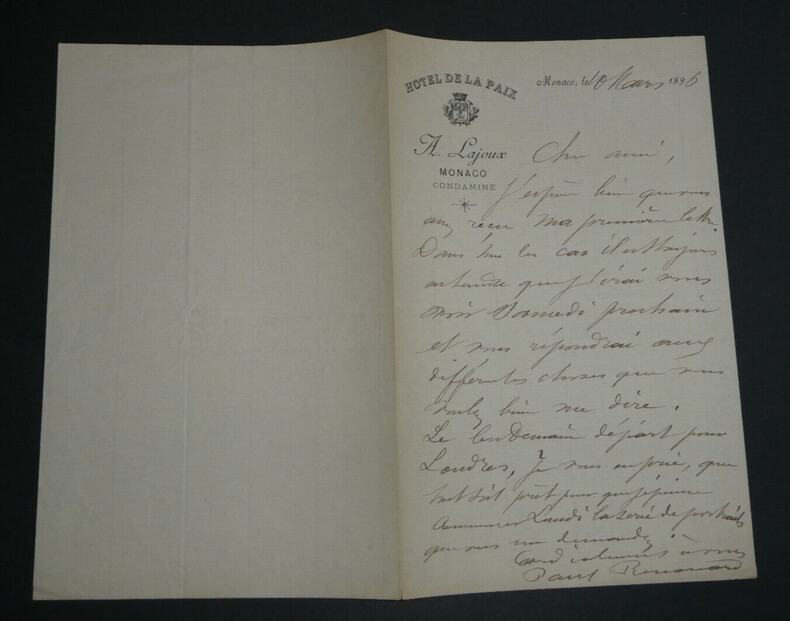 HOTEL DE LA PAIX
Monaco, le 10 Mars 1896
A. Lajoux
MONACO
CONDAMINE
Cher ami,
J'espère bien que vous
avez reçu ma première lettre.
Dans tous les cas il est toujours
entendu que j'irai vous
voir Samedi prochain
et vous répondrai aux
différentes choses que vous
voulez bien me dire.
Le lendemain départ pour
Londres, Je vous en prie, que
tout soit prêt pour que je puisse
commencer Lundi la série de portraits
que vous me demandez
Cordialement à vous
Paul Renouard